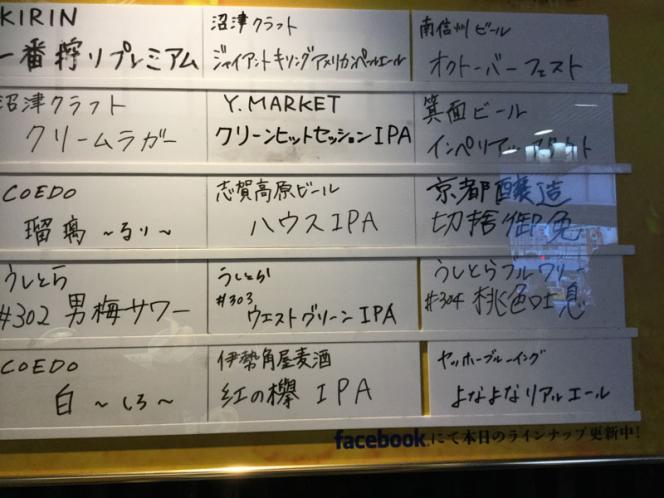 KIRIN
一番搾りプレミアム
沼津クラフト
ジャイアントキリングアメリカンペールエール
南信州ビール
オクトーバーフェスト
沼津クラフト
クリームラガー
Y.MARKET
クリーンヒットセッションIPA
箕面ビール
インペリアル
COEDO
瑠璃 ~るり~
志賀高原ビール
ハウスIPA
京都醸造
切捨御免
うしとら
#302 男梅サワー
うしとら
#303
ウエストグリーンIPA
うしとらブルワリー
#304 桃色吐息
COEDO
白 ~しろ~
伊勢角屋麦酒
紅の欅 IPA
ヤッホーブルーイング
よなよなリアルエール
facebookにて本日のラインナップ更新中!